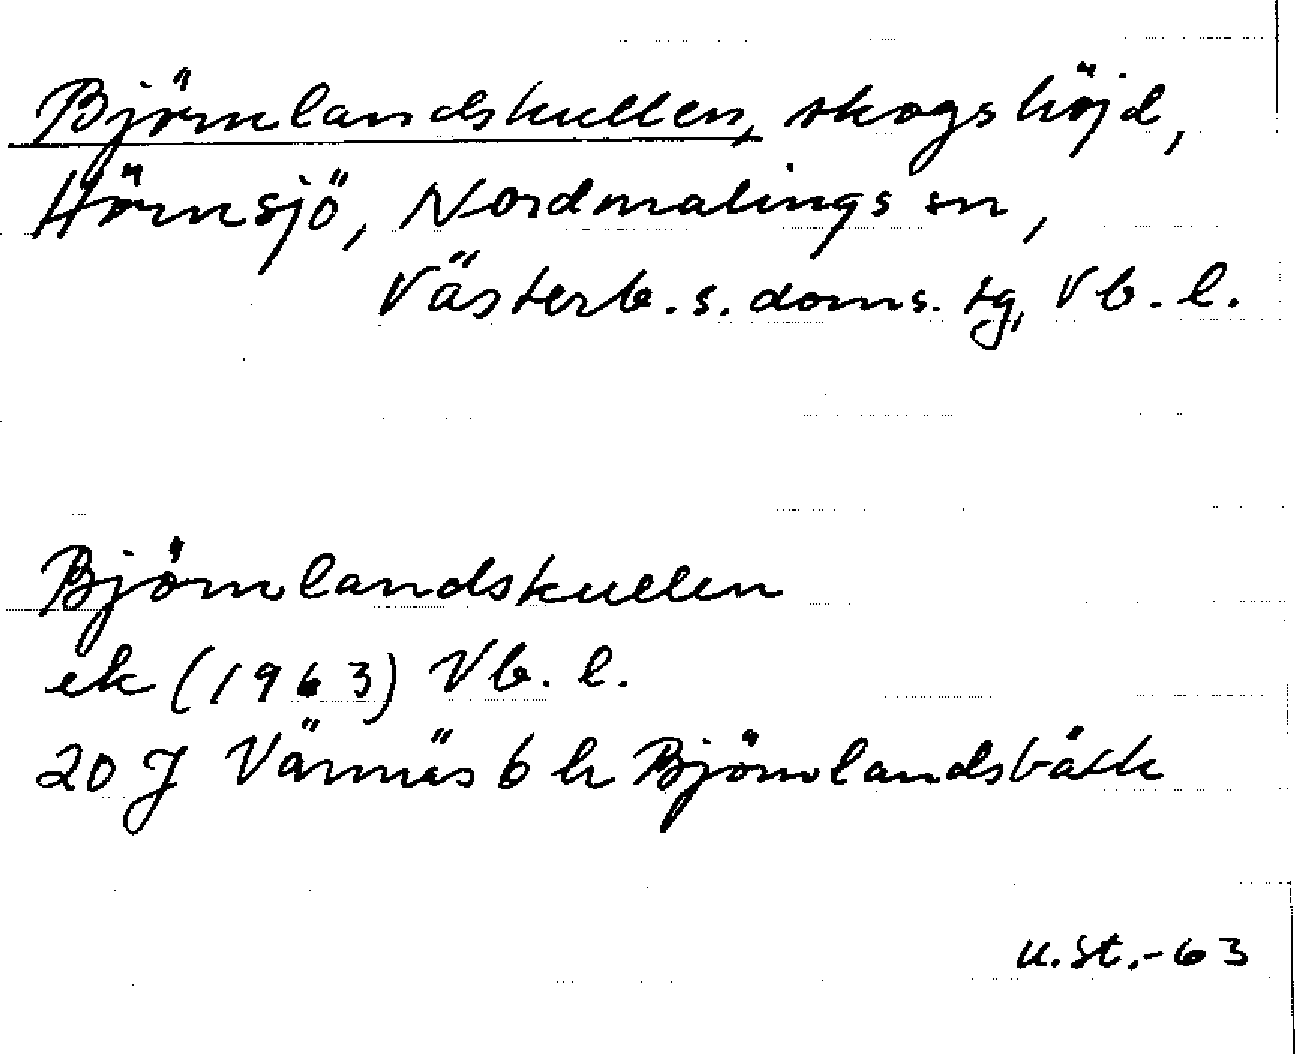 Björnlandskullen, skogshöjd,
Hörnsjö, Nordmalings sn,
Västerb. s. doms. tg, Vb. l.
Björnlandskullen
ek (1963) Vb. l.
20 J Värnäs 6 h Björnlandsbäck
u.st.-63